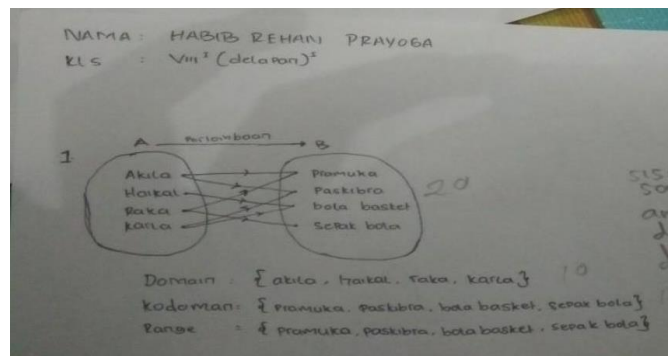 NAMA : HABIB REHAN PRAYOGA
KLS : VIII² (delapan)²
A B
1
Akila Pramuka
Haikal Paskibra
Raka bola basket
Karla Sepak bola
20
Domain : { akila, Haikal, raka, karla }
10
Kodoman : { Pramuka, Paskibra, bola basket, Sepak bola }
Range : { Pramuka, Paskibra, bola basket, sepak bola }